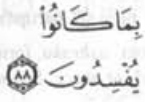 بِمَا كَانُوا۟
يُفْسِدُونَ ﴿٨٨﴾